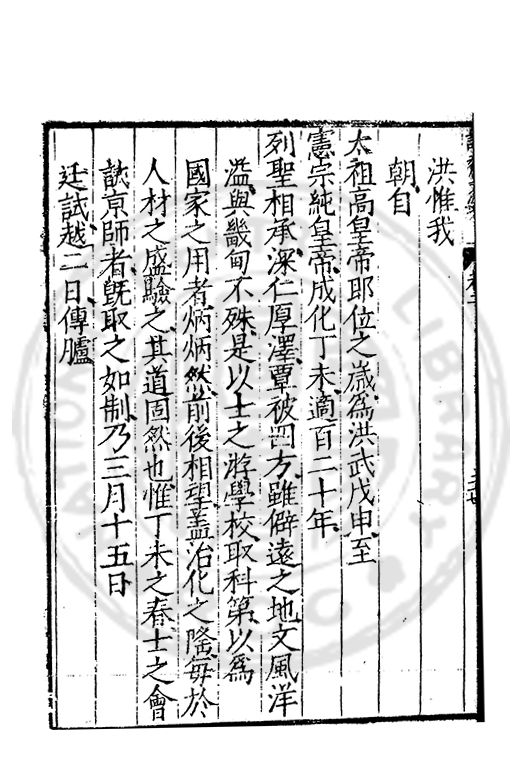 洪惟我
朝自
太祖高皇帝即位之歲爲洪武戊申至
憲宗純皇帝成化丁未適百二十年
列聖相承深仁厚澤覃被四方雖僻遠之地文風洋
溢與畿甸不殊是以士之游學校取科第以爲
國家之用者炳炳然前後相望蓋治化之隆每於
人材之盛驗之其道固然也惟丁未之春士之會
試京師者旣取之如制乃三月十五日
廷試越二日傳臚